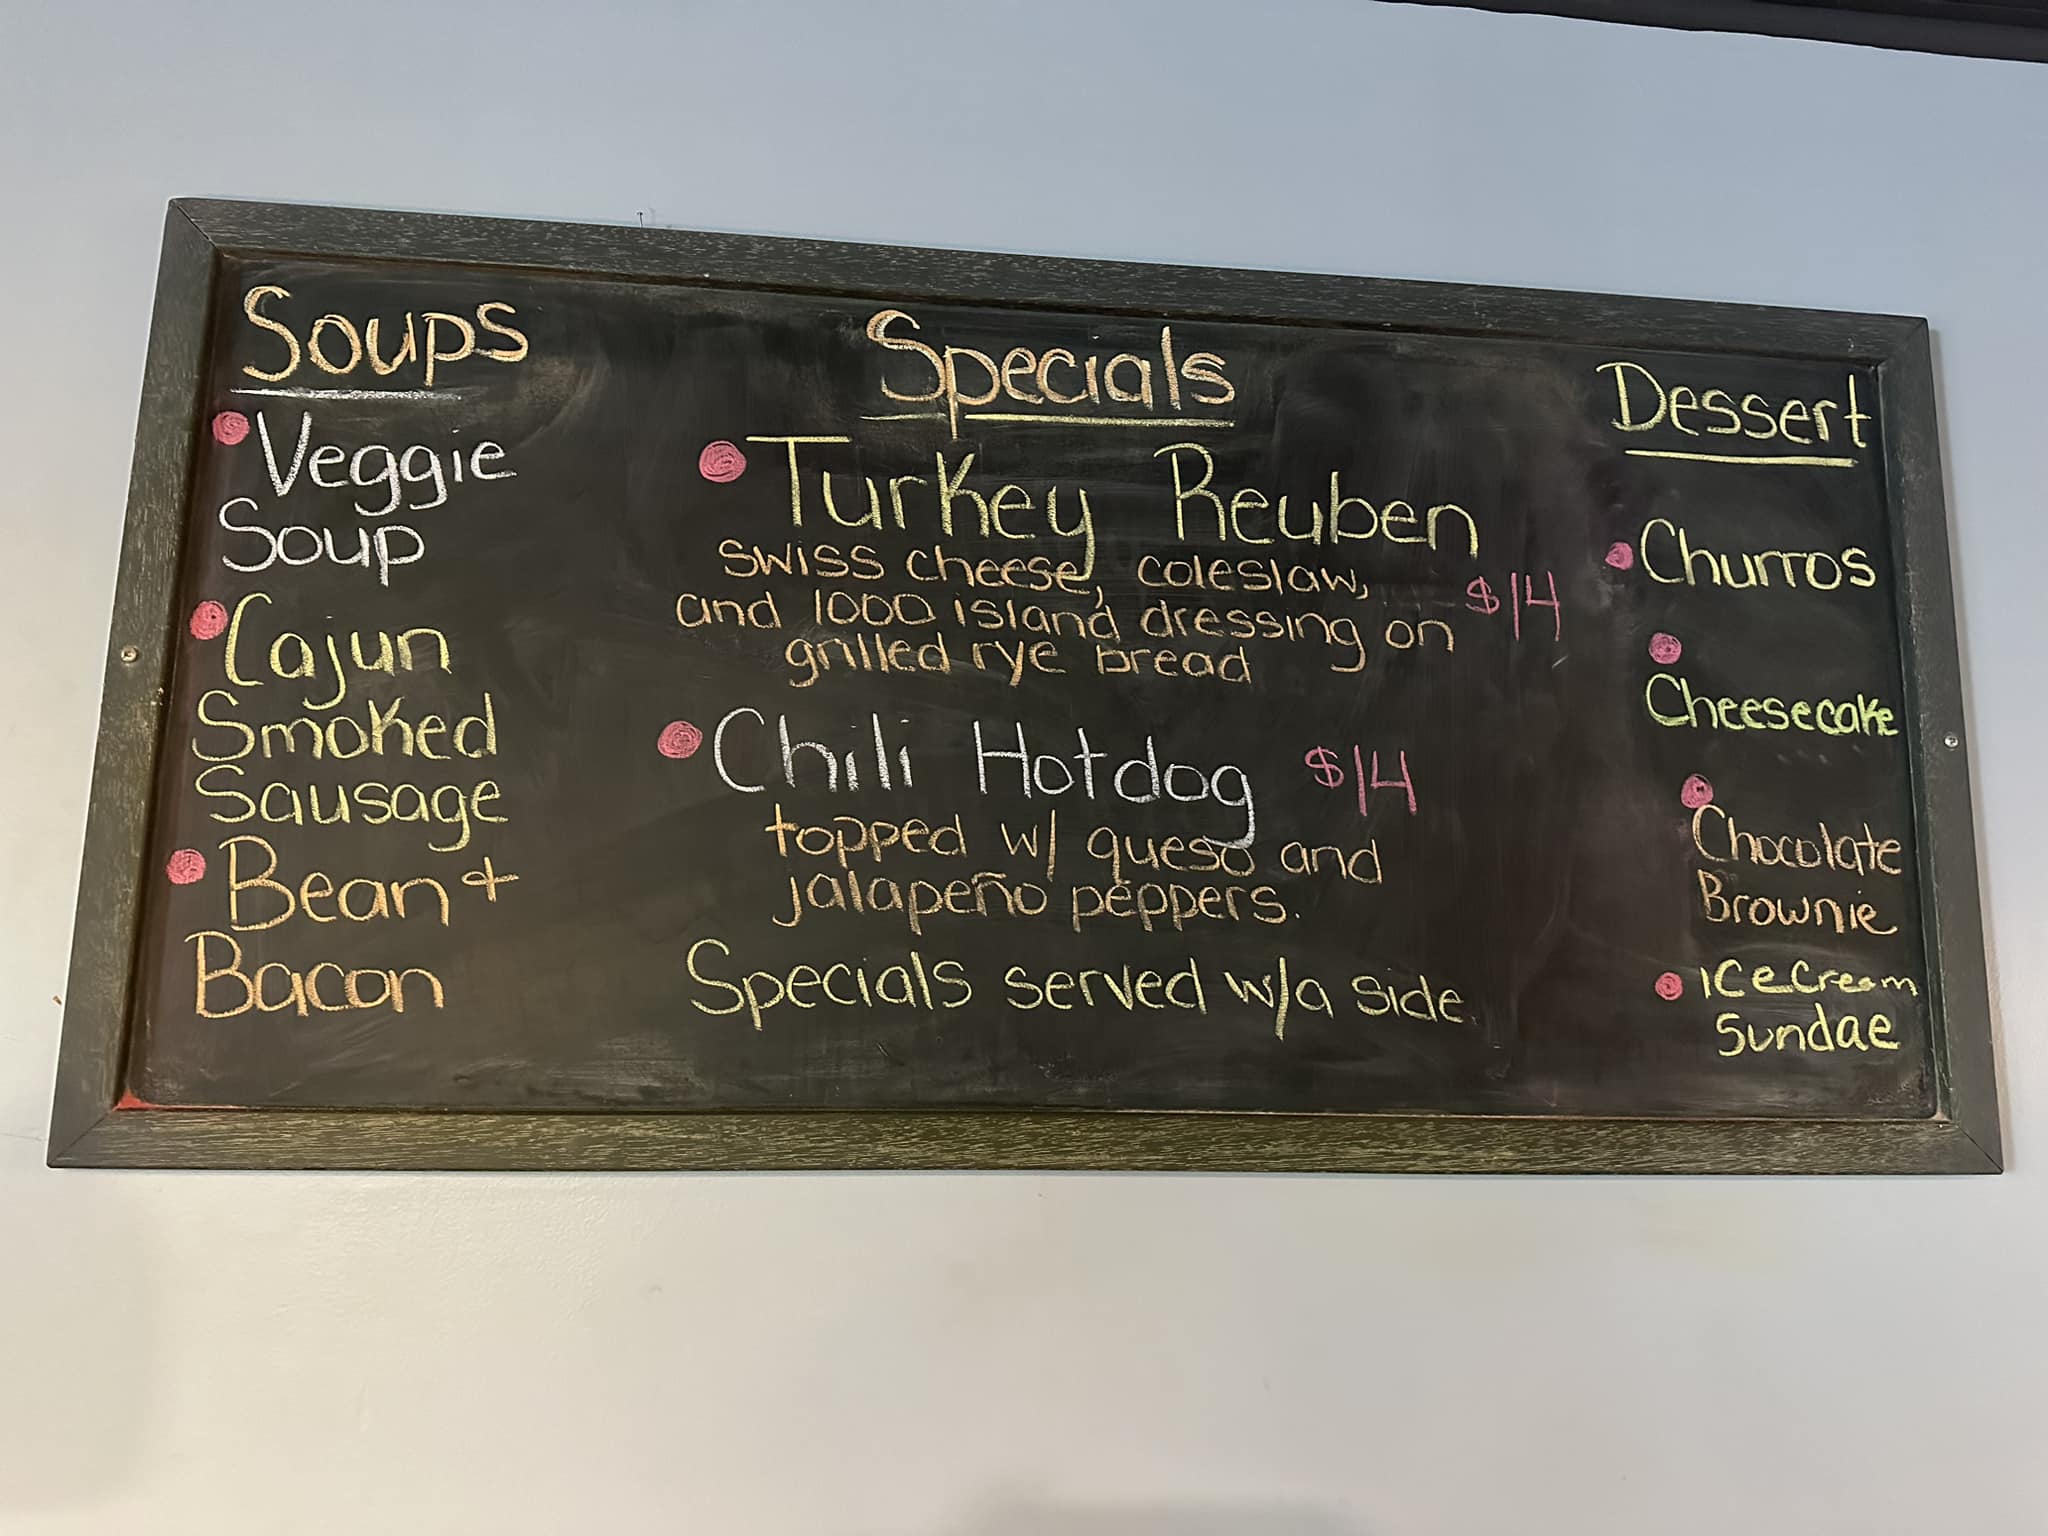 Soups
Veggie
Soup
Cajun
Smoked
Sausage
Bean +
Bacon
Specials
Turkey Reuben
swiss cheese, coleslaw,
and 1000 island dressing on
grilled rye bread
$14
Chili Hotdog $14
topped w/ queso and
jalapeño peppers.
Specials served w/a side.
Dessert
Churros
Cheesecake
Chocolate
Brownie
Ice cream
Sundae